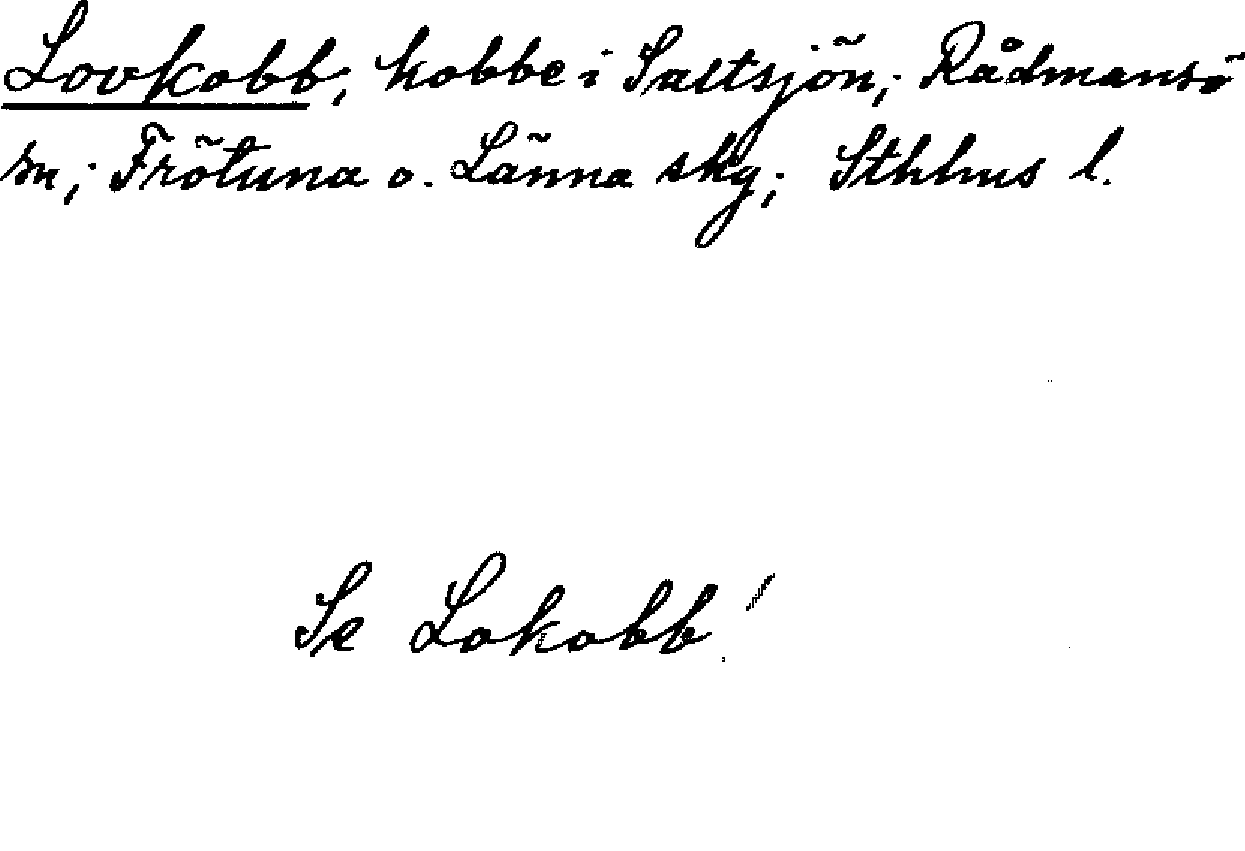 Lovkobb; kobbe i Saltsjön; Rådmansö
sn; Frötuna o. Länna skg; Sthlms l.
Se Lokobb!